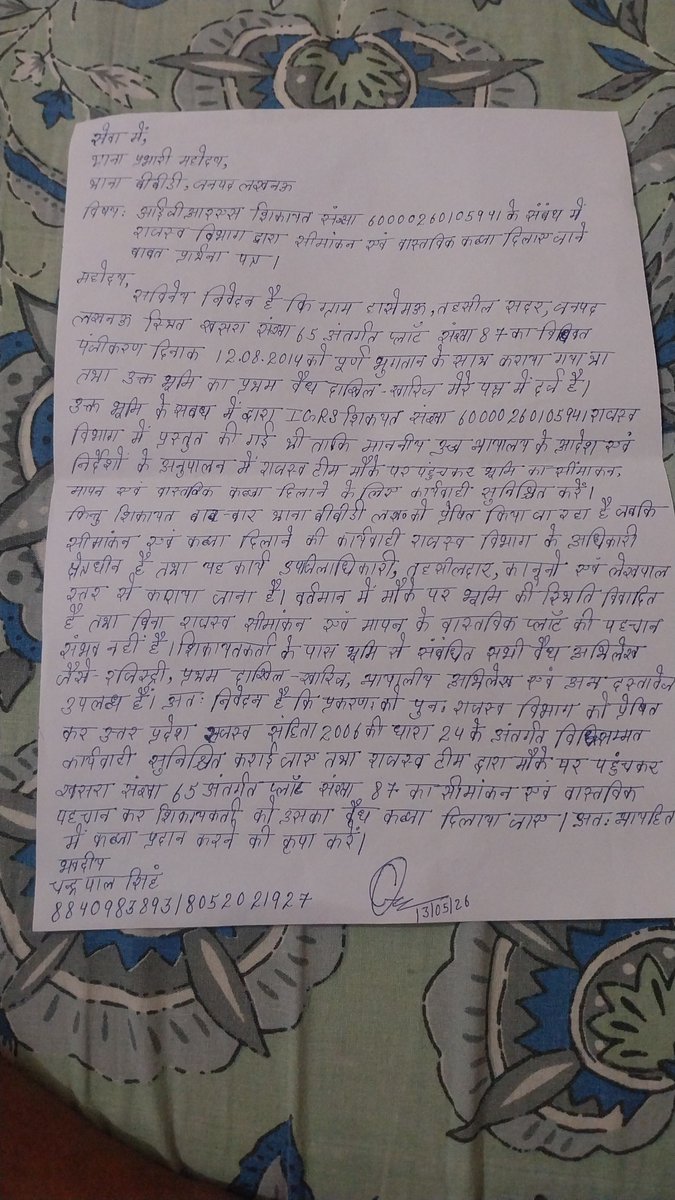 सेवा में,
थाना प्रभारी महोदय,
थाना बीबीडी, जनपद लखनऊ
विषय: आईजीआरएस शिकायत संख्या 60000260105941 के संबंध में
राजस्व विभाग द्वारा सीमांकन एवं वास्तविक कब्जा दिलाए जाने
बावत प्रार्थना पत्र।
महोदय,
सविनय निवेदन है कि ग्राम हासेमऊ, तहसील सदर, जनपद
लखनऊ स्थित खसरा संख्या 65 अंतर्गत प्लॉट संख्या 87 का विधिवत
पंजीकरण दिनाक 12.08.2014 को पूर्ण भुगतान के साथ कराया गया था
तथा उक्त भूमि का प्रथम वैध दाखिल-खारिज मेरे पक्ष में दर्ज है।
उक्त भूमि के सबंध में द्वारा IGRS शिकायत संख्या 60000260105941 राजस्व
विभाग में प्रस्तुत की गई थी ताकि माननीय न्यायालय के आदेश एवं
निर्देशों के अनुपालन में राजस्व टीम मौके पर पहुंचकर भूमि का सीमांकन,
मापन एवं वास्तविक कब्जा दिलाने के लिए कार्यवाही सुनिश्चित करें।
किन्तु शिकायत बार-बार थाना बीबीडी लख० को प्रेषित किया जा रहा है जबकि
सीमांकन एवं कब्जा दिलाने की कार्यवाही राजस्व विभाग के अधिकारी
क्षेत्रधीन है तथा यह कार्य उपजिलाधिकारी, तहसीलदार, कानूनो एवं लेखपाल
स्तर से कराया जाना है। वर्तमान में मौके पर भूमि की स्थिति विवादित
है तथा बिना राजस्व सीमांकन एवं मापन के वास्तविक प्लॉट की पहचान
संभव नहीं है। शिकायतकर्ता के पास भूमि से संबंधित सभी वैध अभिलेख
जैसे- रजिस्ट्री, प्रथम दाखिल-खारिज, न्यायालीय अभिलेख एवं अन्य दस्तावेज
उपलब्ध हैं। अतः निवेदन है कि प्रकरण को पुनः राजस्व विभाग को प्रेषित
कर उत्तर प्रदेश राजस्व संहिता 2006 की धारा 24 के अंतर्गत विधिसम्मत
कार्यवाही सुनिश्चित कराई जाए तथा राजस्व टीम द्वारा मौके पर पहुंचकर
खसरा संख्या 65 अंतर्गत प्लॉट संख्या 87 का सीमांकन एवं वास्तविक
पहचान कर शिकायकर्ता को उसका वैध कब्जा दिलाया जाए। अतः न्यायहित
में कब्जा प्रदान करने की कृपा करें।
भवदीय
चन्द्रपाल सिंह
8840983893/8052021927
13/05/26